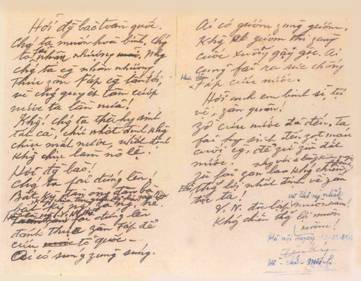 Hỡi đg bào toàn quốc,
Chg ta muốn hoà bình, chg
ta nhân nhượng. Nhưg
chg ta càg nhân nhượng
thực zân Fáp càg lấn tới,
vì chg quyết tâm cướp
nước ta lần nữa!
Khg! chg ta thà hy sinh
tất cả, chứ nhất định khg
chịu mất nước, nhất định
khg chịu làm nô lệ.
Hỡi đg bào!
Chg ta fải đứng lên!
Bất kỳ đàn ông đàn bà
fải đứng lên
đánh thực zân Fáp để
cứu tổ quốc.
Ai có súng zùng súng.
Ai có gươm zùng gươm.
Khg có gươm thì zùng
cuốc xuổng gậy gộc. Ai
cũng fải ra sức chống
Fáp cứu nước.
Hỡi anh em binh sĩ, tự
vệ, zân quân!
Zờ cứu nước đã đến. Ta
fải hy sinh đến zọt máu
cuối cg, để zữ zìn đất
nước.
Zù fải zan lao khg chiến,
thắng lợi nhất định về zân
tộc ta!
V.N. độc lập muôn năm!
Khg chiến thg lợi muôn
năm!
Hà nội ngày
Hồ Chí Minh